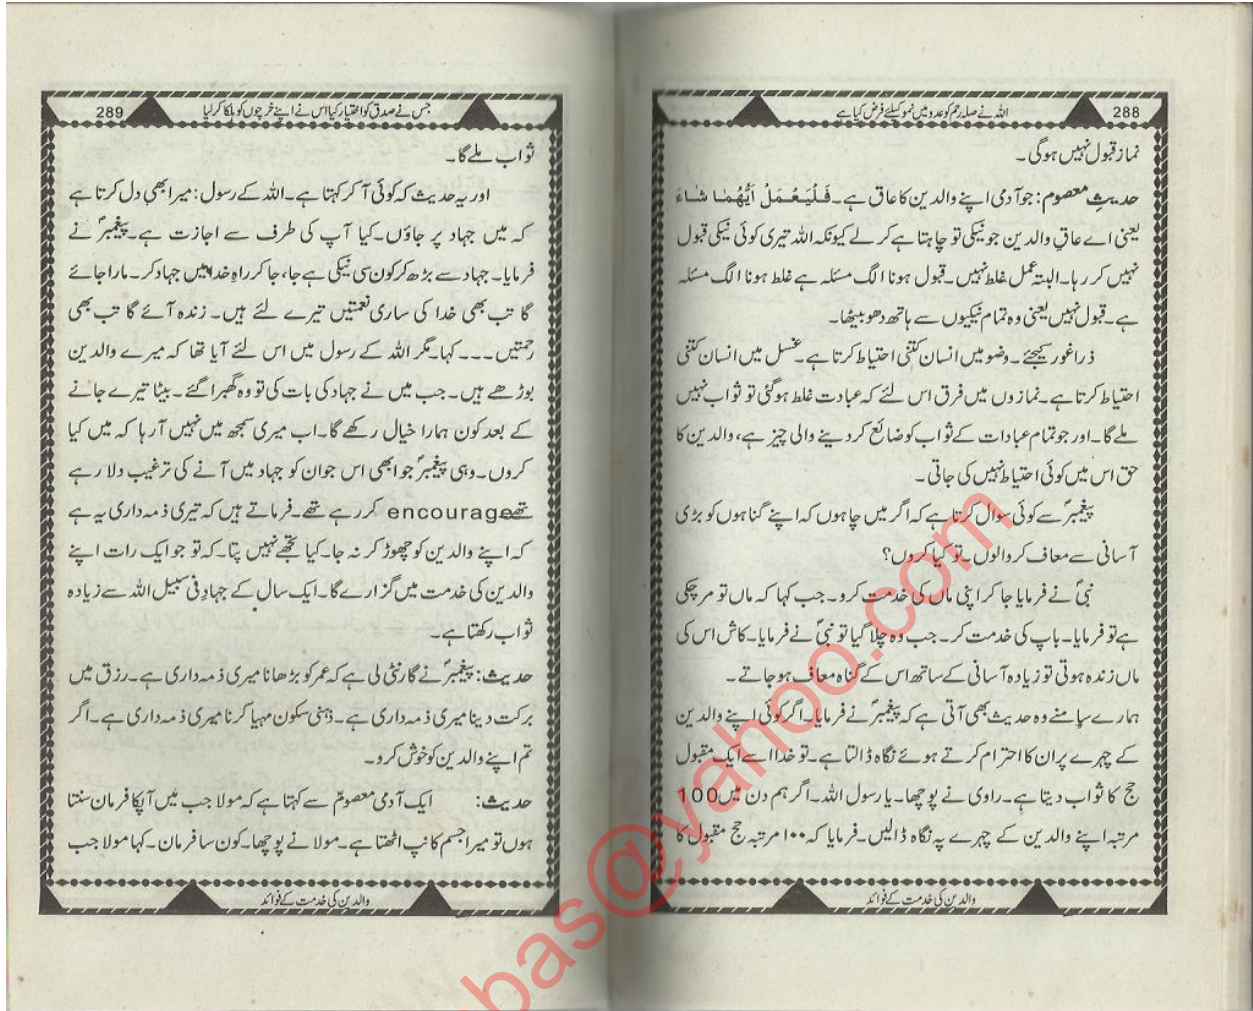 288
اللہ نے صلہ رحم کو عدد میں نمو کیلئے فرض کیا ہے
نماز قبول نہیں ہو گی۔
حدیثِ معصوم: جو آدمی اپنے والدین کا عاق ہے۔ فَلْیَعْمَلْ اَیُّهُمَا شٰاءَ
یعنی اے عاقِ والدین جو نیکی تو چاہتا ہے کر لے کیونکہ اللہ تیری کوئی نیکی قبول
نہیں کر رہا۔ البتہ عمل غلط نہیں۔ قبول ہونا الگ مسئلہ ہے غلط ہونا الگ مسئلہ
ہے۔ قبول نہیں یعنی وہ تمام نیکیوں سے ہاتھ دھو بیٹھا۔
ذرا غور کیجئے۔ وضو میں انسان کتنی احتیاط کرتا ہے۔ غسل میں انسان کتنی
احتیاط کرتا ہے۔ نمازوں میں فرق اس لئے کہ عبادت غلط ہو گئی تو ثواب نہیں
ملے گا۔ اور جو تمام عبادات کے ثواب کو ضائع کر دینے والی چیز ہے، والدین کا
حق اس میں کوئی احتیاط نہیں کی جاتی۔
پیغمبرؐ سے کوئی سوال کرتا ہے کہ اگر میں چاہوں کہ اپنے گناہوں کو بڑی
آسانی سے معاف کروالوں۔ تو کیا کروں؟
نبیؐ نے فرمایا جا کر اپنی ماں کی خدمت کرو۔ جب کہا کہ ماں تو مر چکی
ہے تو فرمایا۔ باپ کی خدمت کر۔ جب وہ چلا گیا تو نبیؐ نے فرمایا۔ کاش اس کی
ماں زندہ ہوتی تو زیادہ آسانی کے ساتھ اس کے گناہ معاف ہو جاتے۔
ہمارے سامنے وہ حدیث بھی آتی ہے کہ پیغمبرؐ نے فرمایا۔ اگر کوئی اپنے والدین
کے چہرے پر ان کا احترام کرتے ہوئے نگاہ ڈالتا ہے۔ تو خدا اسے ایک مقبول
حج کا ثواب دیتا ہے۔ راوی نے پوچھا۔ یا رسول اللہ۔ اگر ہم دن میں 100
مرتبہ اپنے والدین کے چہرے پہ نگاہ ڈالیں۔ فرمایا کہ ۱۰۰ مرتبہ حج مقبول کا
والدین کی خدمت کے فوائد
جس نے صدق کو اختیار کیا اس نے اپنے خرچوں کو ہلکا کر لیا
289
ثواب ملے گا۔
اور یہ حدیث کہ کوئی آ کر کہتا ہے۔ اللہ کے رسول: میرا بھی دل کرتا ہے
کہ میں جہاد پر جاؤں۔ کیا آپ کی طرف سے اجازت ہے۔ پیغمبرؐ نے
فرمایا۔ جہاد سے بڑھ کر کون سی نیکی ہے جا، جا کر راہِ خدا میں جہاد کر۔ مارا جائے
گا تب بھی خدا کی ساری نعمتیں تیرے لئے ہیں۔ زندہ آئے گا تب بھی
رحمتیں۔۔۔ کہا۔ مگر اللہ کے رسول میں اس لئے آیا تھا کہ میرے والدین
بوڑھے ہیں۔ جب میں نے جہاد کی بات کی تو وہ گھبرا گئے۔ بیٹا تیرے جانے
کے بعد کون ہمارا خیال رکھے گا۔ اب میری سمجھ میں نہیں آ رہا کہ میں کیا
کروں۔ وہی پیغمبرؐ جو ابھی اس جوان کو جہاد میں آنے کی ترغیب دلا رہے
تھے encourage کر رہے تھے۔ فرماتے ہیں کہ تیری ذمہ داری یہ ہے
کہ اپنے والدین کو چھوڑ کر نہ جا۔ کیا تجھے نہیں پتا۔ کہ تو جو ایک رات اپنے
والدین کی خدمت میں گزارے گا۔ ایک سال کے جہاد فی سبیل اللہ سے زیادہ
ثواب رکھتا ہے۔
حدیث: پیغمبرؐ نے گارنٹی لی ہے کہ عمر کو بڑھانا میری ذمہ داری ہے۔ رزق میں
برکت دینا میری ذمہ داری ہے۔ ذہنی سکون مہیا کرنا میری ذمہ داری ہے۔ اگر
تم اپنے والدین کو خوش کرو۔
حدیث: ایک آدمی معصومؑ سے کہتا ہے کہ مولا جب میں آپکا فرمان سنتا
ہوں تو میرا جسم کانپ اٹھتا ہے۔ مولا نے پوچھا۔ کون سا فرمان۔ کہا مولا جب
والدین کی خدمت کے فوائد
bas@yahoo.com